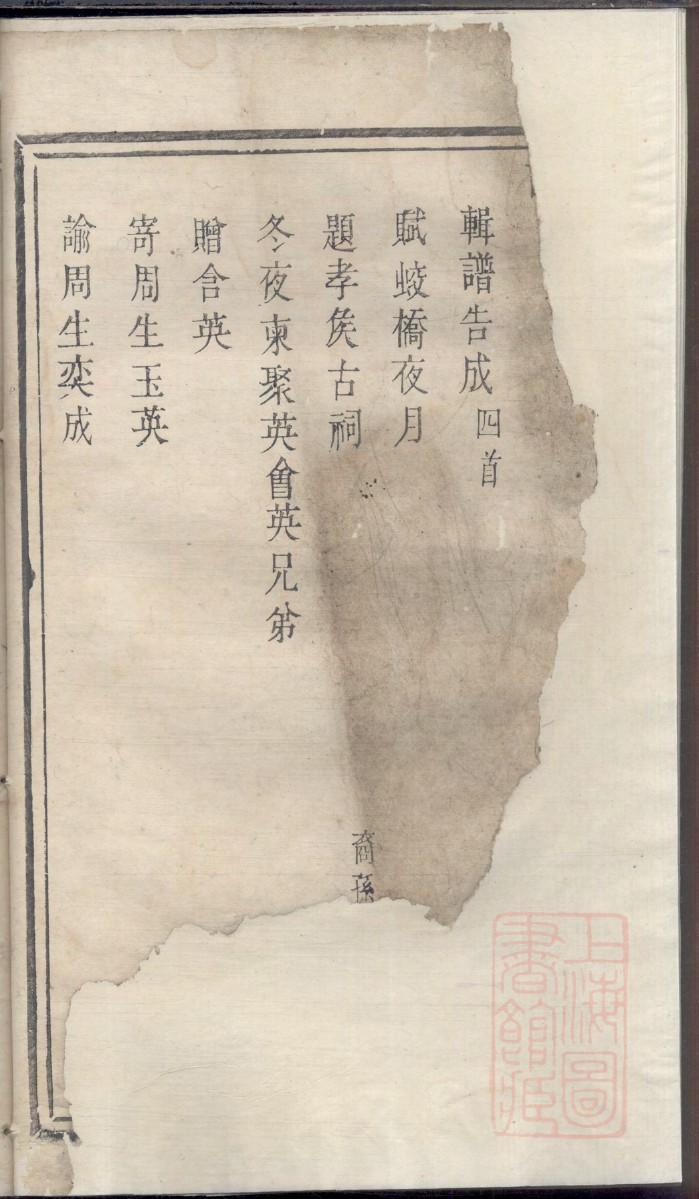 輯譜告成四首
賦蛟橋夜月
題孝矦古祠
裔孫
冬夜柬聚英會英兄弟
贈含英
寄周生玉英
諭周生奕成
上海圖
書館藏